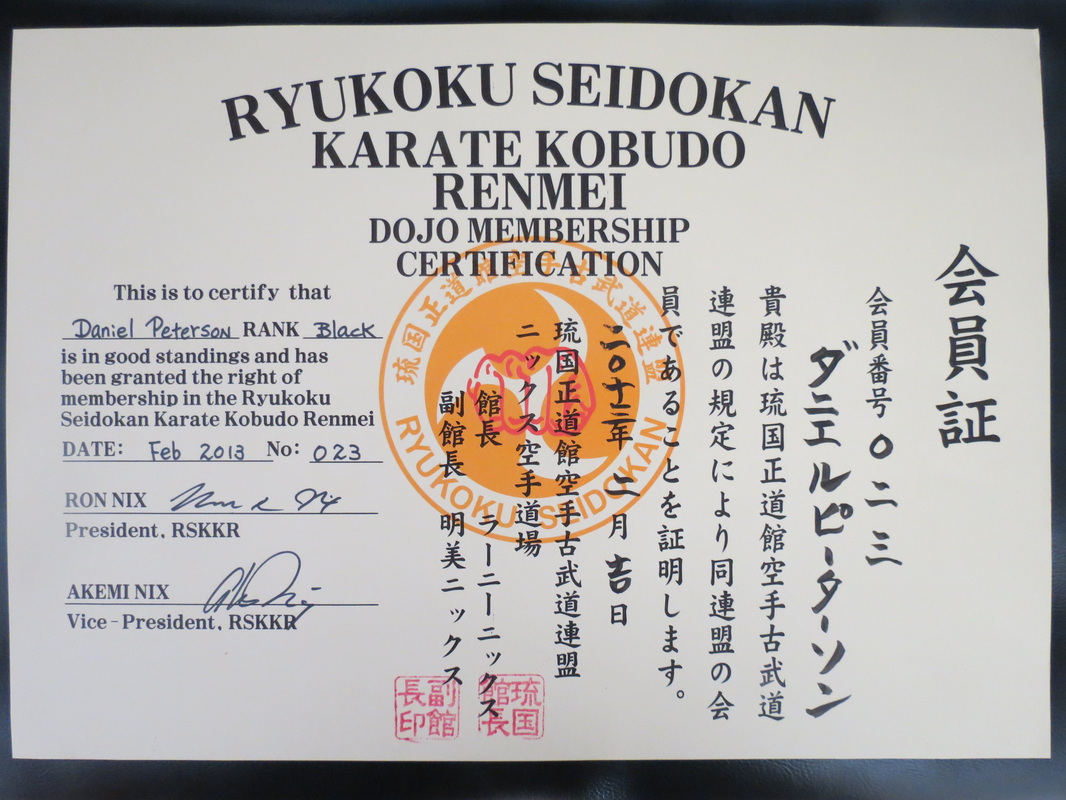 RYUKOKU SEIDOKAN
KARATE KOBUDO
RENMEI
DOJO MEMBERSHIP
CERTIFICATION
This is to certify that
Daniel Peterson RANK Black
is in good standings and has
been granted the right of
membership in the Ryukoku
Seidokan Karate Kobudo Renmei
DATE: Feb 2013 No: 023
RON NIX
President, RSKKR
AKEMI NIX
Vice-President, RSKKR
会員証
会員番号 〇二三
ダニエルピーターソン
貴殿は琉国正道館空手古武道
連盟の規定により同連盟の会
員であることを証明します。
二〇十三年 二月 吉日
琉国正道館空手古武道連盟
ニックス空手道場
館長 ラーニーニックス
副館長 明美ニックス
琉国正道館空手古武道連盟
RYUKOKU SEIDOKAN
琉国
館長
副館
長印